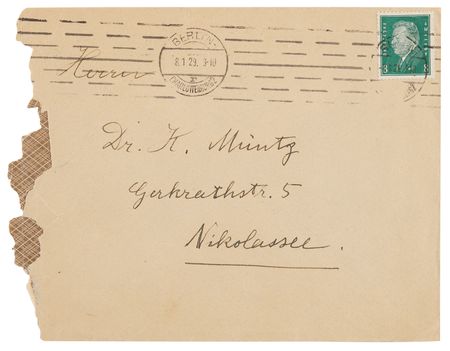 BERLIN-
8.1.29. 3-10
CHARLOTTENBURG
Herrn
Dr. K. Müntz
Gerkrathstr. 5
Nikolassee.
8 8